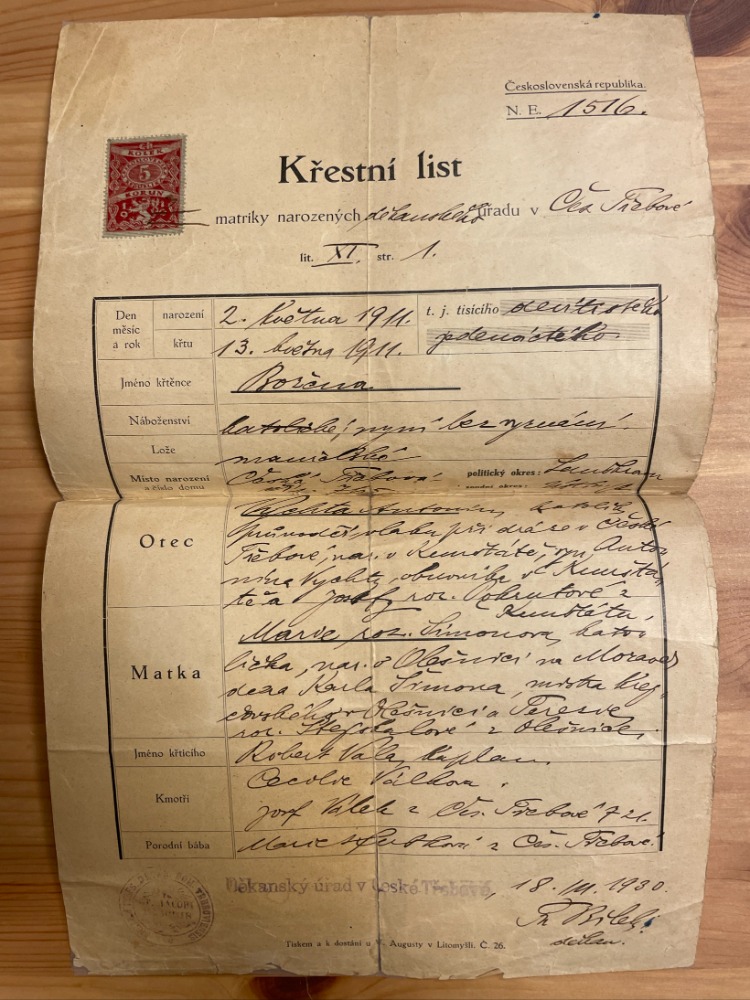 Československá republika.
N. E. 1516.
KOLEK
5
KORUN
Křestní list
matriky narozených děkanského úřadu v Čes. Třebové
lit. XI. str. 1.
Den měsíc a rok
narození 2. května 1911. t. j. tisícího devítistého
křtu 13. května 1911. jedenáctého
Jméno křtěnce Božena
Náboženství katolické, nyní bez vyznání.
Lože manželské
Místo narození Česká Třebová politický okres: Lanškroun
a číslo domu soudní okres:
Otec
Vychta Antonín, katolík,
průvodčí vlaku při dráze v České
Třebové, nar. v Kunštátě, syn Anto-
nína Vychty, obuvníka v Kunštá-
tě a Josefy roz. z
Kunštátu.
Matka
Marie roz. Šimonova, kato-
lička, nar. v Olešnici na Moravě
dcera Karla Šimona, mistra krej-
čovského v Olešnici a Terezie
roz. z Olešnice.
Jméno křtícího Robert Vala, kaplan.
Kmotři
Cecilie Válkova.
Josef Válek z Čes. Třebové
Porodní bába Marie z Čes. Třebové.
Děkanský úřad v České Třebové, 18. III. 1930.
děkan.
Tiskem a k dostání u V. Augusty v Litomyšli. Č. 26.